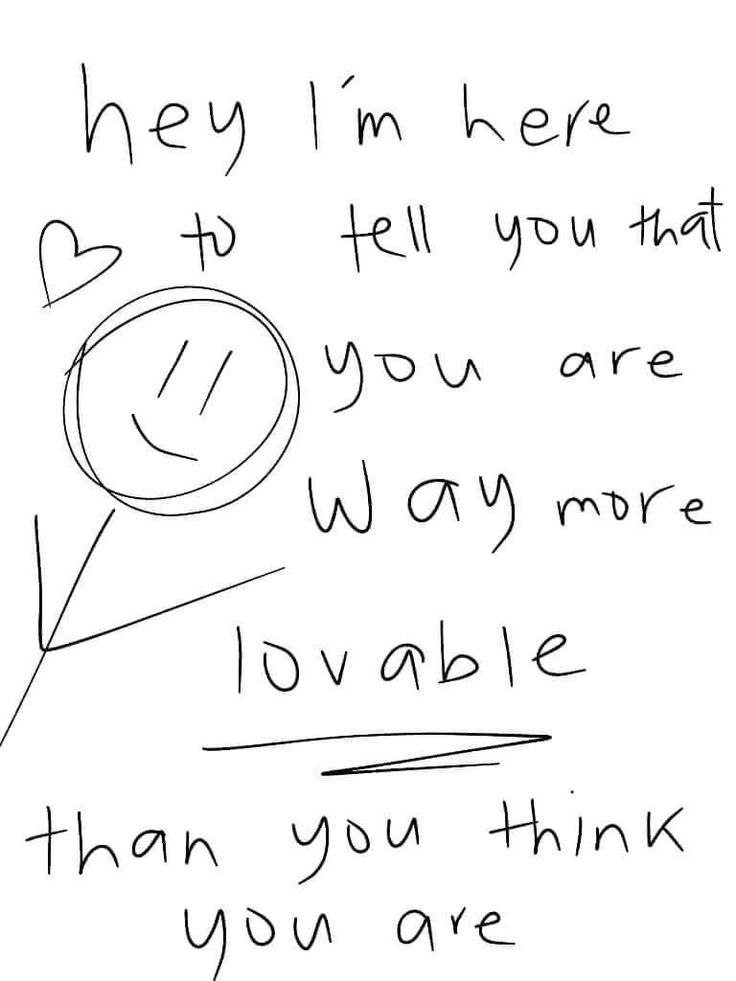 hey I'm here
to tell you that
you are
way more
lovable
than you think
you are